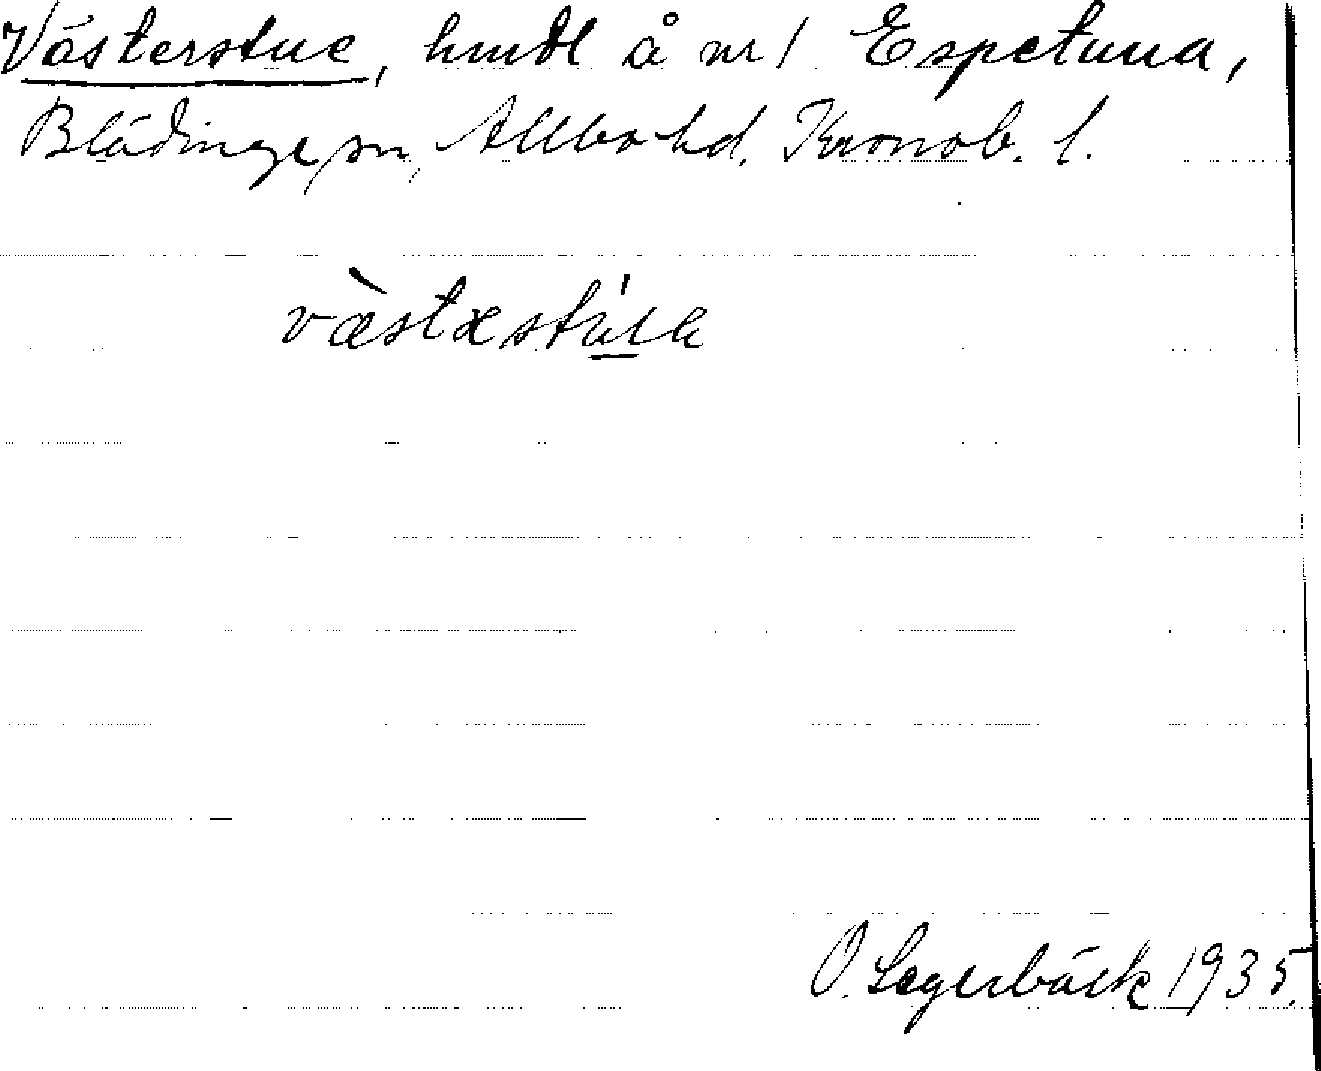 Västerstue, hmdl å nr 1 Espetuna,
Blädinge sn, Allbo hd. Kronob. l.
væ̀stæstúɩɩa
O. Segerbäck 1935.